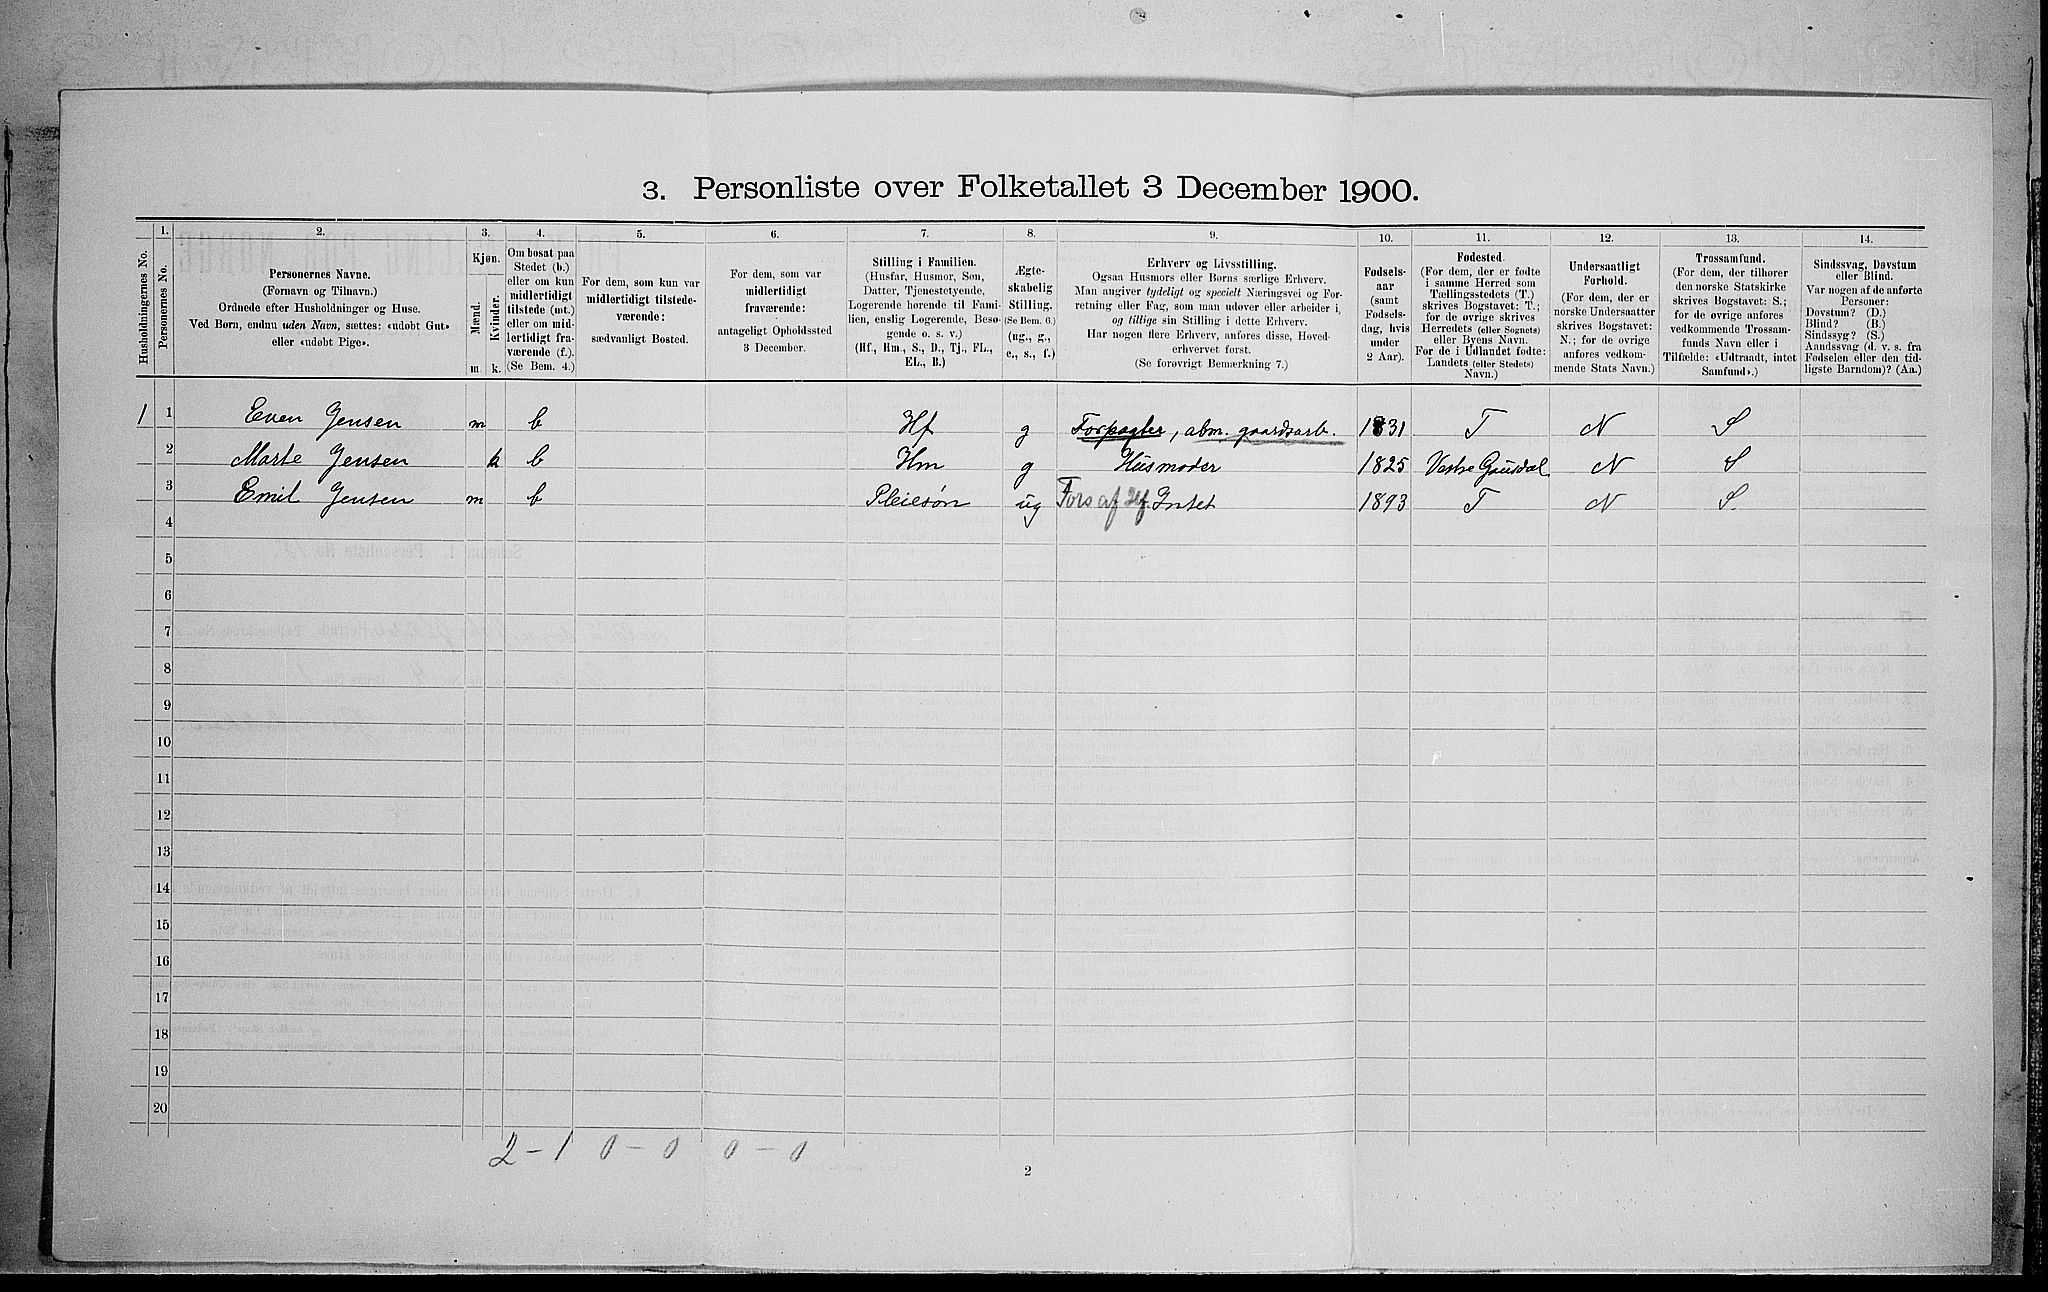 3. Personliste over Folketallet 3 December 1900.
Husholdningernes No.
1.
Personernes No.
2.
Personernes Navne.
(Fornavn og Tilnavn.)
Ordnede efter Husholdninger og Huse.
Ved Børn, endnu uden Navn, sættes: «udøbt Gut»
eller «udøbt Pige».
3.
Kjøn.
Mænd.
Kvinder.
m.
k.
4.
Om bosat paa
Stedet (b.)
eller om kun
midlertidigt
tilstede (mt.)
eller om mid-
lertidigt fra-
værende (f.).
(Se Bem. 4.)
5.
For dem, som kun var
midlertidigt tilstede-
værende:
sædvanligt Bosted.
6.
For dem, som var
midlertidigt
fraværende:
antageligt Opholdssted
3 December.
7.
Stilling i Familien.
(Husfar, Husmor, Søn,
Datter, Tjenestetyende,
Logerende hørende til Fami-
lien, enslig Logerende, Besø-
gende o. s. v.)
(Hf., Hm., S., D., Tj., FL.,
EL., B.)
8.
Ægte-
skabelig
Stilling.
(Se Bem. 6.)
(ug., g.,
e., s., f.)
9.
Erhverv og Livsstilling.
Ogsaa Husmors eller Børns særlige Erhverv.
Man angiver tydeligt og specielt Næringsvei og For-
retning eller Fag, som man udøver eller arbeider i,
og tillige sin Stilling i dette Erhverv.
Har nogen flere Erhverv, anføres disse, Hoved-
erhvervet først.
(Se forøvrigt Bemærkning 7.)
10.
Fødsels-
aar
(samt
Fødsels-
dag, hvis
under
2 Aar).
11.
Fødested.
(For dem, der er fødte
i samme Herred som
Tællingsstedets (T.)
skrives Bogstavet: T.;
for de øvrige skrives
Herredets (eller Sognets)
eller Byens Navn.
For de i Udlandet fødte:
Landets (eller Stedets)
Navn.)
12.
Undersaatligt
Forhold.
(For dem, der er
norske Undersaatter
skrives Bogstavet:
N.; for de øvrige
anføres vedkom-
mende Stats Navn.)
13.
Trossamfund.
(For dem, der tilhører
den norske Statskirke
skrives Bogstavet: S.;
for de øvrige anføres
vedkommende Trossam-
funds Navn eller i
Tilfælde: «Udtraadt, intet
Samfund».)
14.
Sindssvag, Døvstum
eller Blind.
Var nogen af de anførte
Personer:
Døvstum? (D.)
Blind? (B.)
Sindssyg? (S.)
Aandssvag (d. v. s. fra
Fødselen eller den tid-
ligste Barndom)? (Aa.)
1 1 Even Jensen m b Hf g Forpagter, alm. gaardsarb. 1831 T N S
2 Marte Jensen k b Hm g Husmoder 1825 Vestre Gausdal N S
3 Emil Jensen m b Pleiesøn ug Fors af Hf. Intet 1893 T N S.
4
5
6
7
8
9
10
11
12
13
14
15
16
17
18
19
20
2 - 1 0 - 0 0 - 0
2